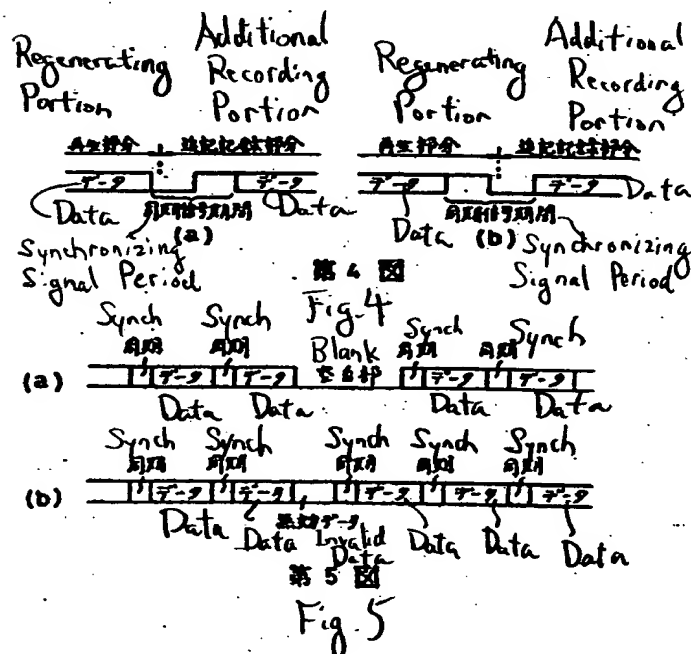 Regenerating Portion
Additional Recording Portion
Regenerating Portion
Additional Recording Portion
再生部分 追記記録部分
再生部分 追記記録部分
データ データ
データ データ
Data Data
Data Data
同期信号期間
同期信号期間
(a)
(b)
Synchronizing Signal Period
Synchronizing Signal Period
第4図
Fig.4
Synch Synch Blank Synch Synch
同期 同期 空白部 同期 同期
(a) データ データ データ データ
Data Data Data Data
Synch Synch Synch Synch Synch
同期 同期 同期 同期 同期
(b) データ データ データ データ データ
Data Data 無効データ Data Data Data
Invalid Data
第5図
Fig.5